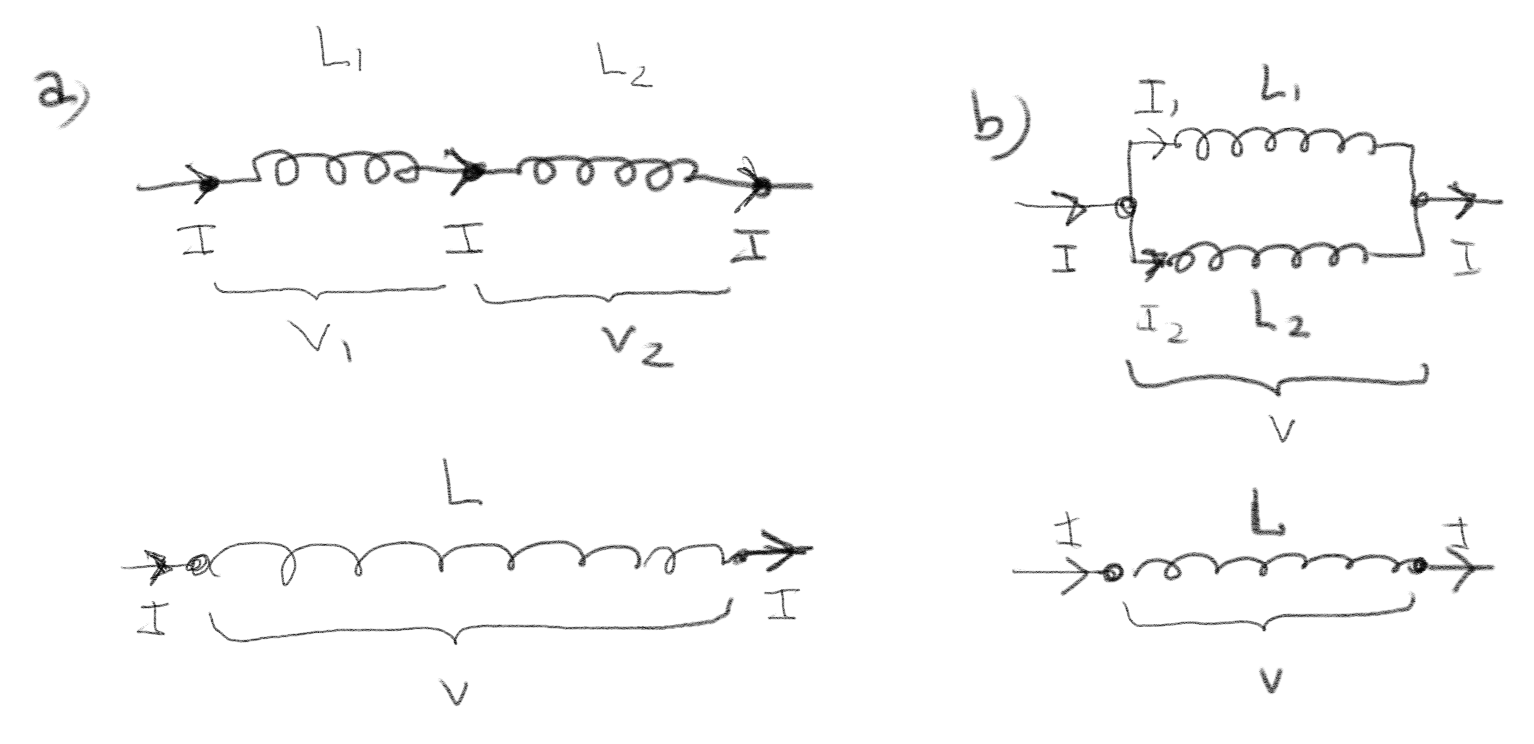 a)
L1 L2
I I I
V1 V2
L
I I
V
b)
I1 L1
I I
I2 L2
V
I L I
V